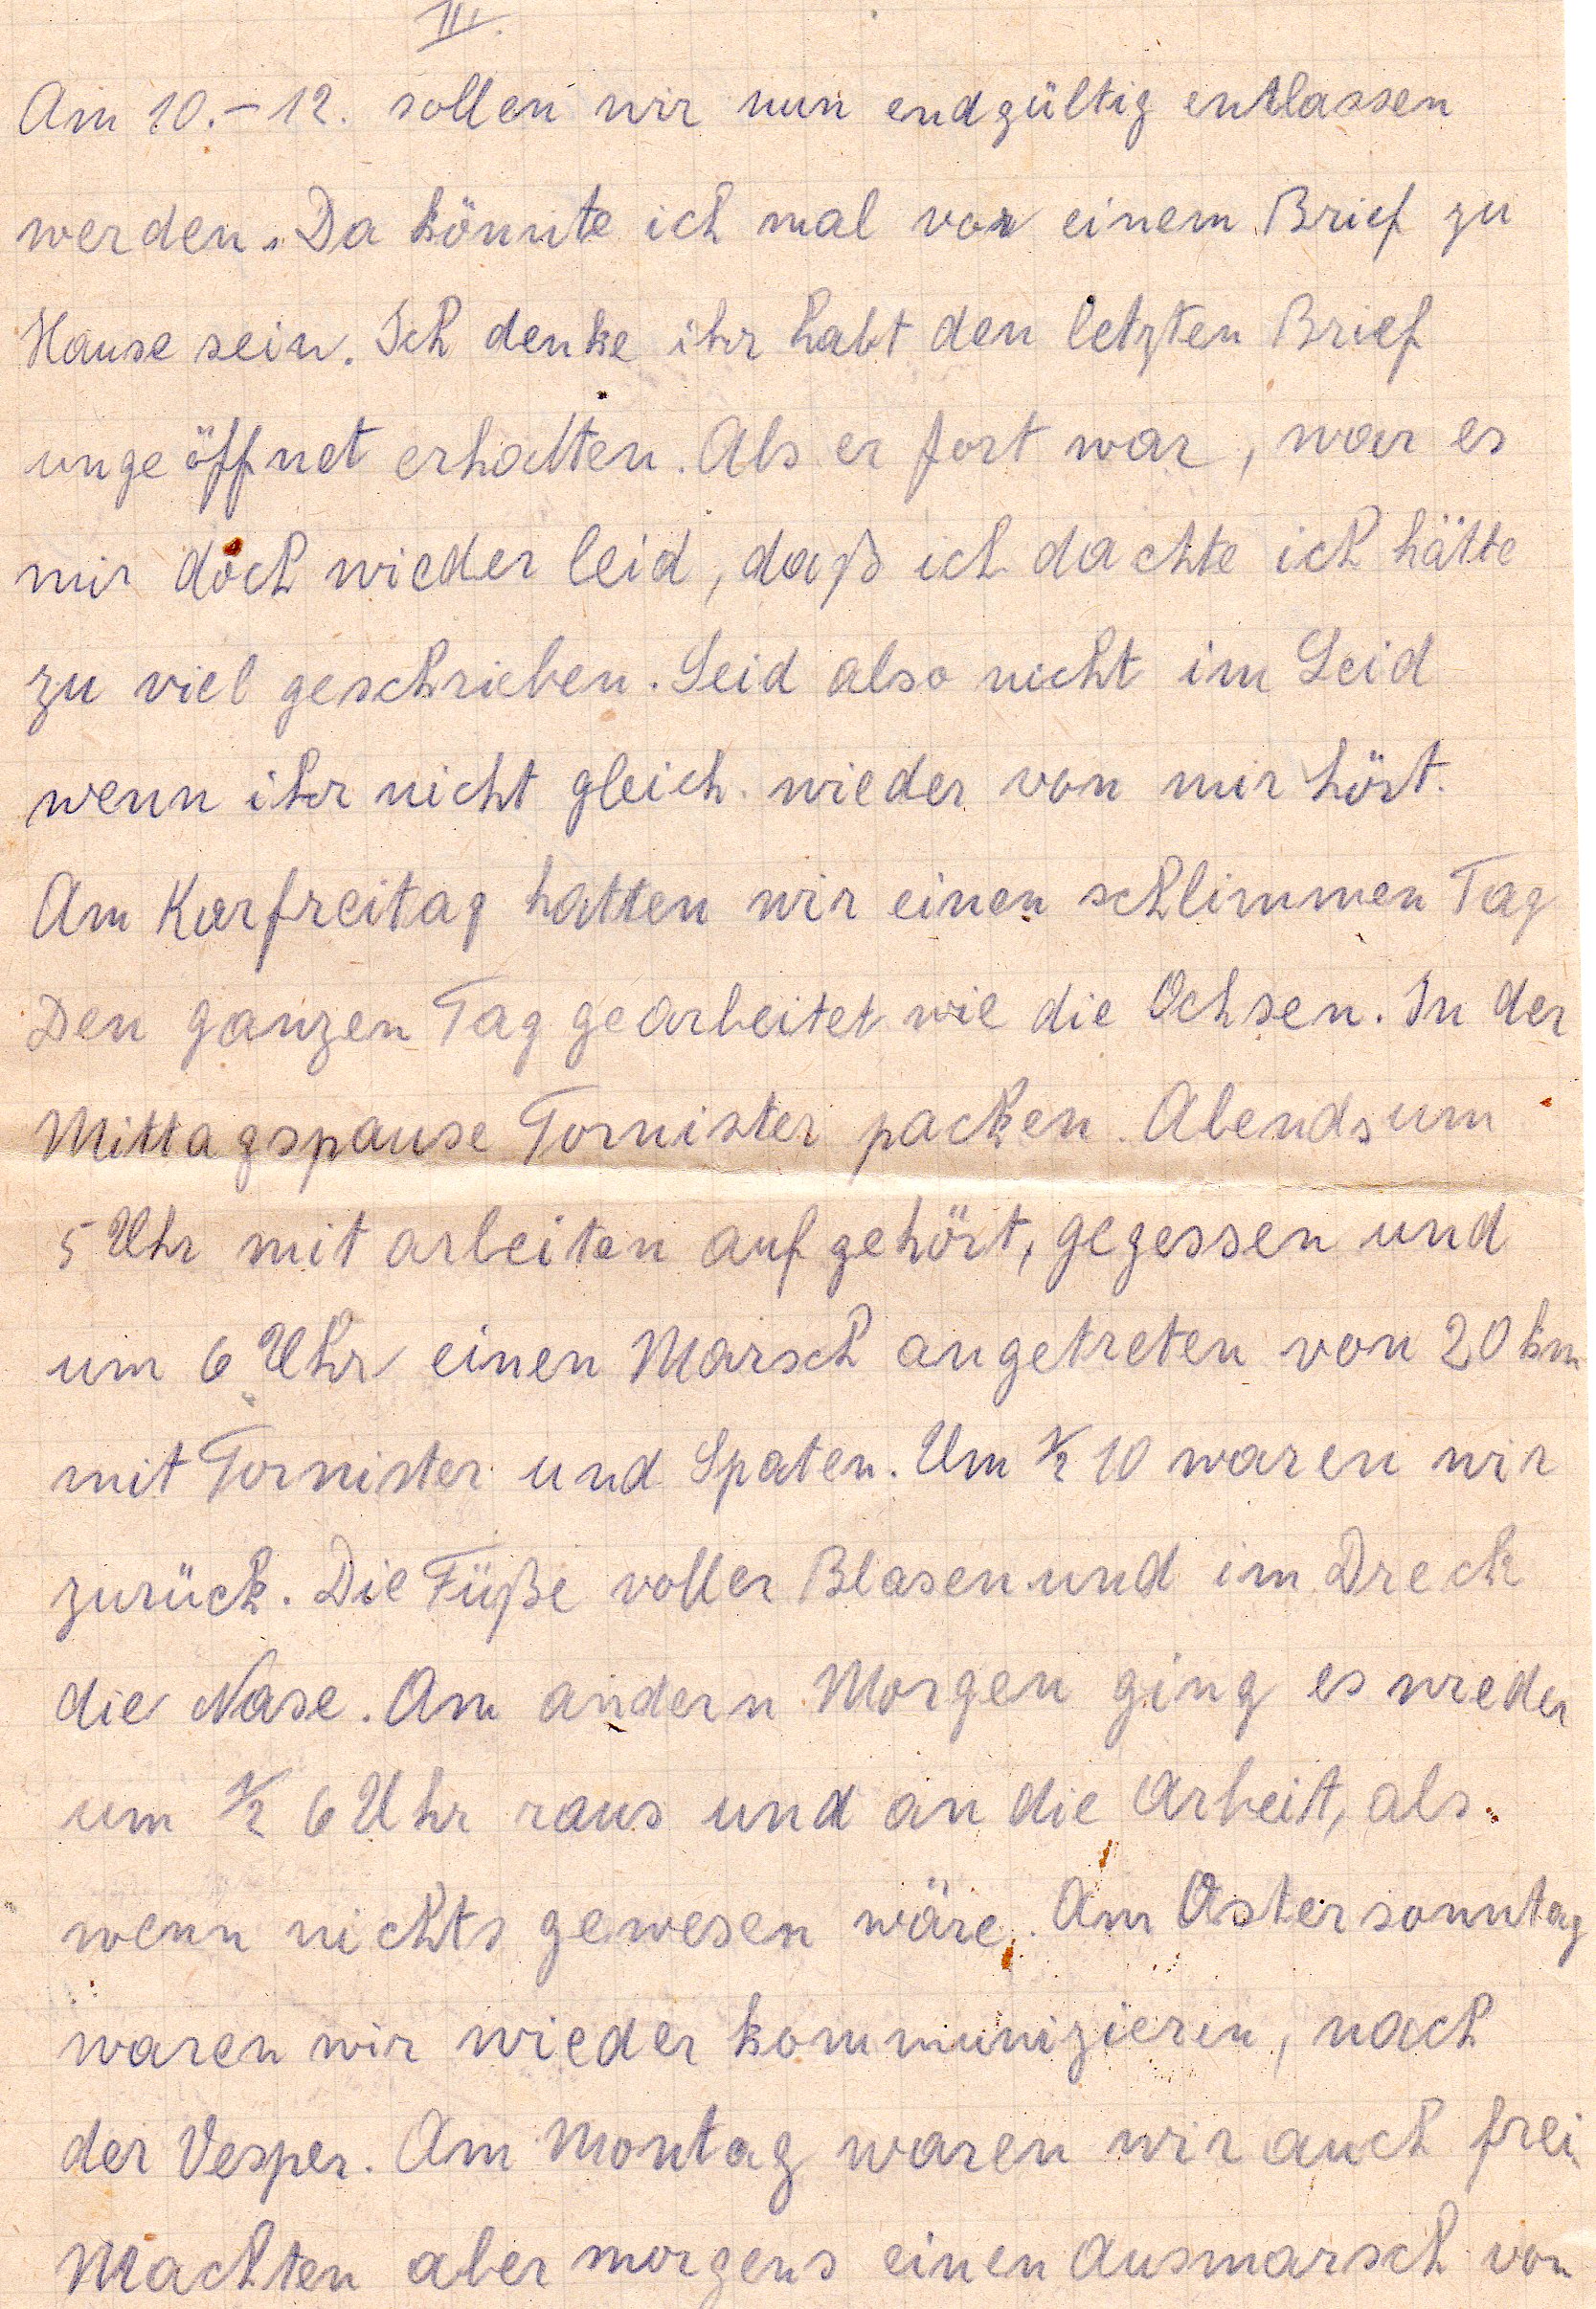 III.
Am 10.-12. sollen wir nun endgültig entlassen
werden. Da könnte ich mal vor einem Brief zu
Hause sein. Ich denke ihr habt den letzten Brief
ungeöffnet erhalten. Als er fort war, war es
mir doch wieder leid, daß ich dachte ich hätte
zu viel geschrieben. Seid also nicht im Leid
wenn ihr nicht gleich wieder von mir hört.
Am Karfreitag hatten wir einen schlimmen Tag
Den ganzen Tag gearbeitet wie die Ochsen. In der
Mittagspause Tornister packen. Abends um
5 Uhr mit arbeiten aufgehört, gegessen und
um 6 Uhr einen Marsch angetreten von 20 km
mit Tornister und Spaten. Um ½ 10 waren wir
zurück. Die Füße voller Blasen und im Dreck
die Nase. Am andern Morgen ging es wieder
um ½ 6 Uhr raus und an die Arbeit, als
wenn nichts gewesen wäre. Am Ostersonntag
waren wir wieder kommunizieren, nach
der Vesper. Am Montag waren wir auch frei
Machten aber morgens einen Ausmarsch von